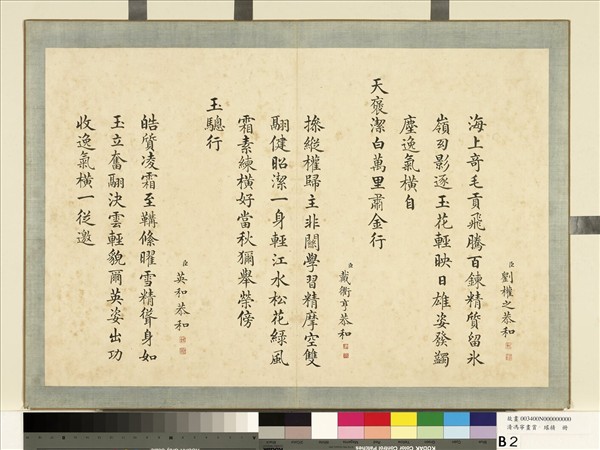 臣劉權之恭和
海上奇毛貢飛騰百鍊精質留氷
嶺影逐玉花輕映日雄姿發蠲
塵逸氣橫自
天褒潔白萬里肅金行
臣戴衢亨恭和
操縱權歸主非關學習精摩空雙
翮健昭潔一身輕江水松花綠風
霜素練橫好當秋獮舉榮傍
玉驄行
臣英和恭和
皓質凌霜至鞲絛曜雪精聳身如
玉立奮翮決雲輕貌爾英姿出功
收逸氣橫一從邀
故畫 003400N000000000
清馮寧畫 冊
B2
KODAK Color Control Patches